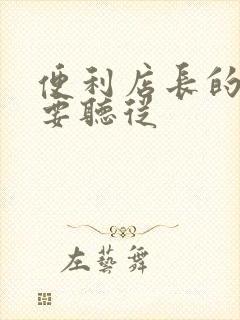 便利店長的
要聽從
左藝舞